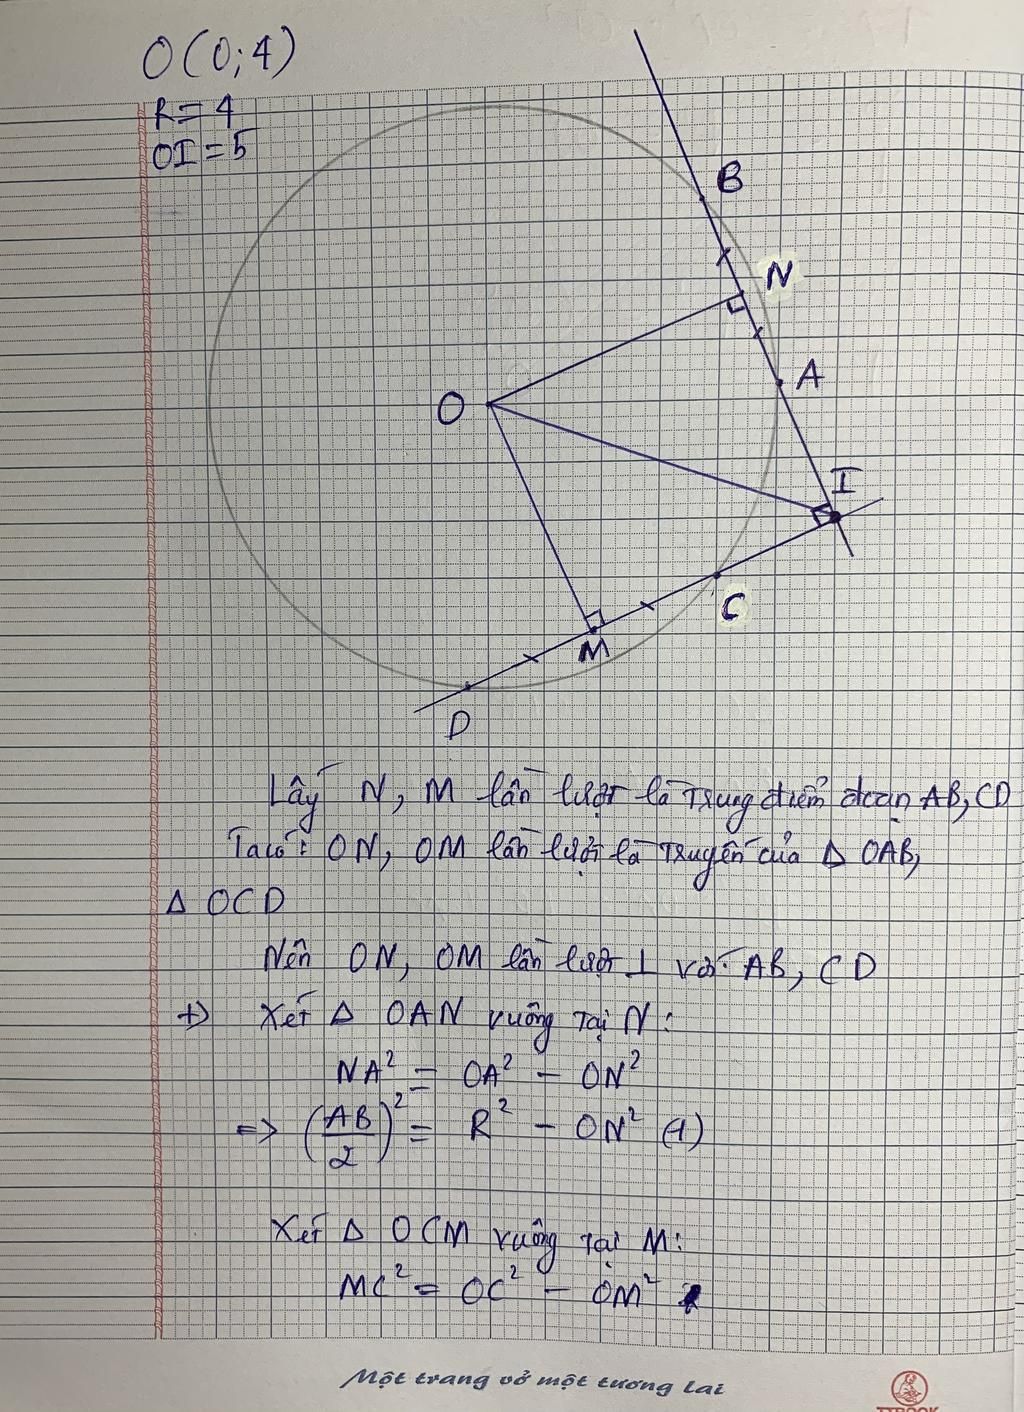 O(0;4)
R = 4
OI = 5
B
N
A
O
I
C
M
D
Lấy N, M lần lượt là trung điểm đoạn AB, CD
Ta có: ON, OM lần lượt là truyến của Δ OAB,
Δ OCD
Nên ON, OM lần lượt ⊥ với AB, CD
+) Xét Δ OAN vuông tại N:
NA² = OA² - ON²
=> (AB/2)² = R² - ON² (1)
Xét Δ OCM vuông tại M:
MC² = OC² - OM²
Một trang vở một tương lai